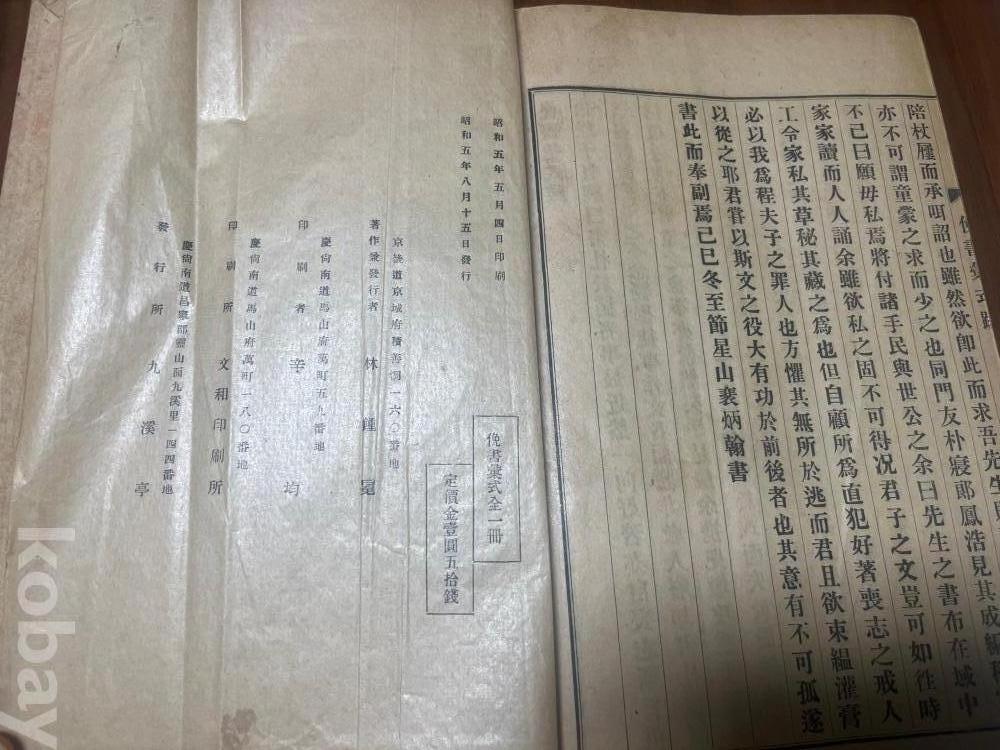 陪杖屨而承咡詔也雖然欲卽此而求吾先生
亦不可謂童蒙之求而少之也同門友朴寢郞鳳浩見其成編
不已曰願毋私焉將付諸手民與世公之余曰先生之書布在域中
家家讀而人人誦余雖欲私之固不可得况君子之文豈可如徃時
工令家私其草秘其藏之爲也但自顧所爲直犯好著喪志之戒人
必以我爲程夫子之罪人也方懼其無所於逃而君且欲束縕灌膏
以從之耶君甞以斯文之役大有功於前後者也其意有不可孤遂
書此而奉副焉己巳冬至節星山裵炳翰書
昭和五年五月四日印刷
昭和五年八月十五日發行
俛書彙式全一冊
定價金壹圓五拾錢
京畿道京城府積善洞一六〇番地
著作兼發行者 林鍾
慶尙南道馬山府萬町五九番地
印刷者 辛均
慶尙南道馬山府萬町一八〇番地
印刷所 文和印刷所
慶尙南道昌寧郡靈山面九溪里一四四番地
發行所 九溪亭
kobay